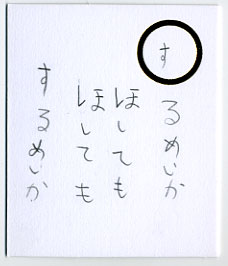 するめいか
ほしても
ほしても
するめいか